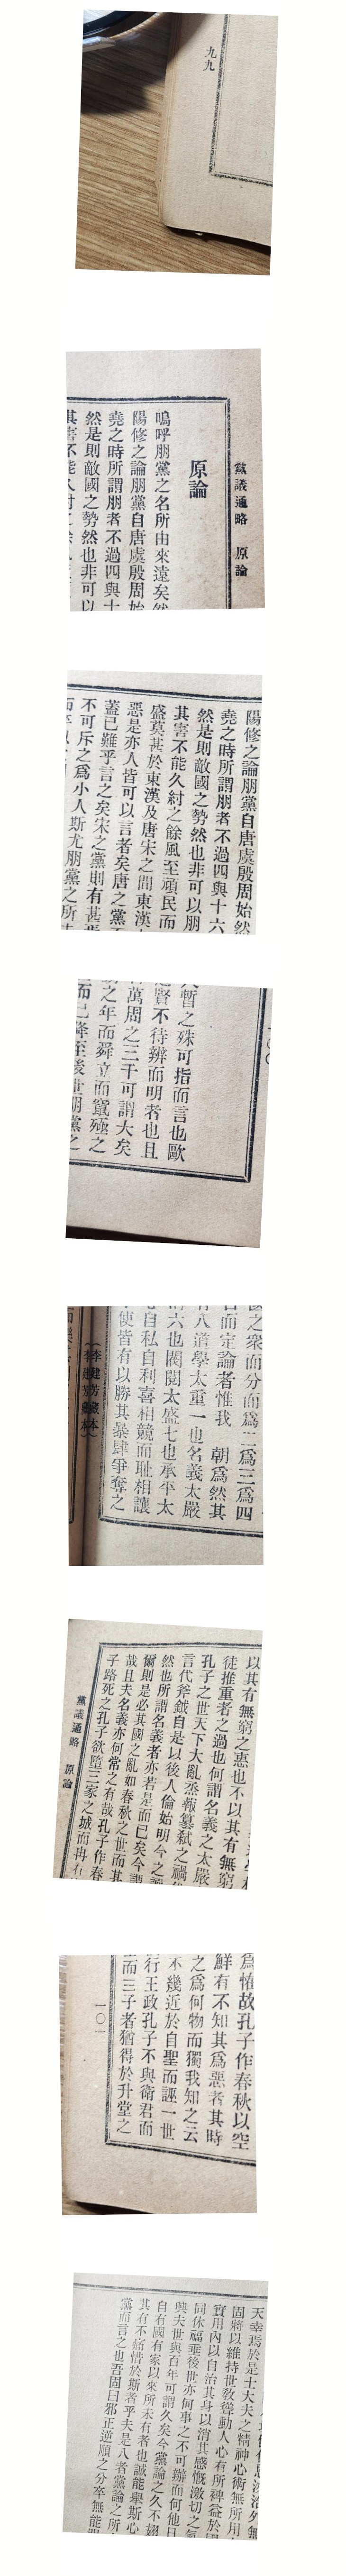 九九
黨議通略 原論
原論
嗚呼朋黨之名所由來遠矣然
陽修之論朋黨自唐虞殷周始
堯之時所謂朋者不過四與十
然是則敵國之勢然也非可以
其害不能久紂之
陽修之論朋黨自唐虞殷周始然
堯之時所謂朋者不過四與十六
然是則敵國之勢然也非可以朋
其害不能久紂之餘風至頑民而
盛莫甚於東漢及唐宋之間東漢
惡是亦人皆可以言者矣唐之黨
蓋已難乎言之矣宋之黨則有甚焉
不可斥之爲小人斯尤朋黨之所
一〇〇
暫之殊可指而言也歐
賢不待辨而明者也且
萬周之三千可謂大矣
之年而舜立而竄殛之
而已降至後世朋黨之
之衆而分而爲二爲三爲四
而定論者惟我 朝爲然其
八道學太重一也名義太嚴
六也閥閱太盛七也承平太
自私自利喜相競而恥相讓
使皆有以勝其暴肆爭奪之
以其有無窮之惠也不以其有無窮
徒推重者之過也何謂名義之太嚴
孔子之世天下大亂烝報簒弑之禍
言代斧鉞自是以後人倫始明今之
然也所謂名義者亦若是而已矣今
爾則是必其國之亂如春秋之世而其
哉且夫名義亦何常之有哉孔子作春
子路死之孔子欲墮三家之城而冉有
黨議通略 原論
爲懼故孔子作春秋以空
鮮有不知其爲惡者其時
之爲何物而獨我知之云
不幾近於自聖而誣一世
行王政孔子不與衛君而
而三子者猶得於升堂之
一〇一
天幸焉於是士大夫之精神心術無所用
固將以維持世敎聳動人心有所裨益於國
實用內以自治其身以消其感慨激切之氣
同休福垂後世亦何事之不可辦而何他日
興夫世與百年可謂久矣今黨論之久不趐
自有國有家以來所未有者也誠能舉斯心
其有不痛惜於斯者乎夫是八者黨論之所
黨而言之也吾固曰邪正逆順之分卒無能